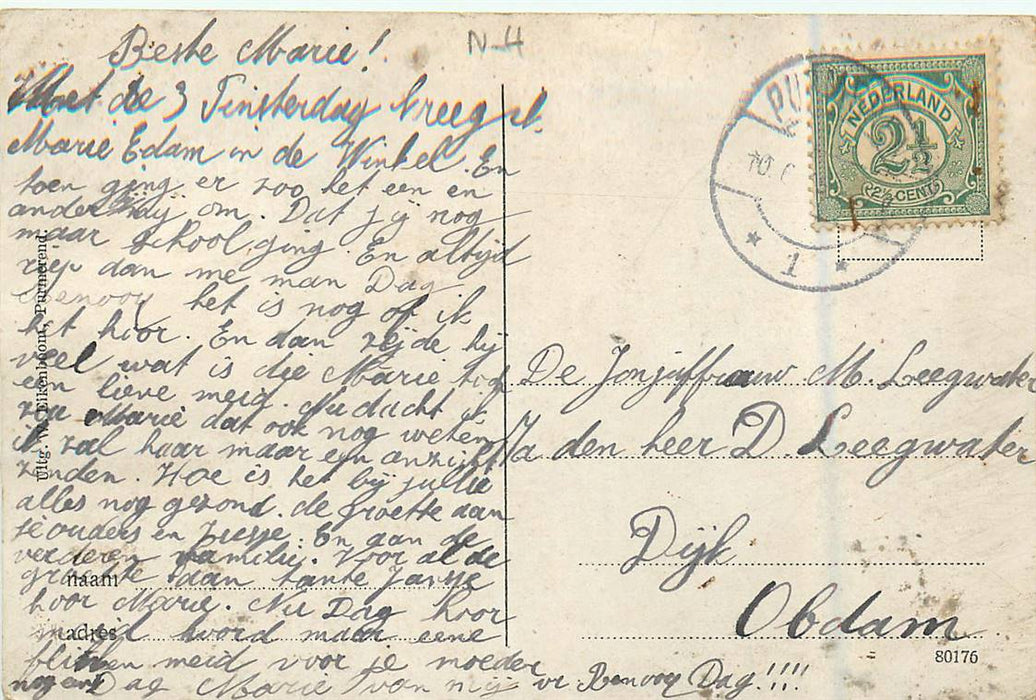 N-H
Beste Marie!
Met de 3 Pinsterdag kreeg ik
Marie Edam in de Winkel. En
toen ging er zoo het een en
ander bij om. Dat jij nog
maar school ging. En altijd
riep dan me man Dag
het is nog of ik
het hoor. En dan zeijde hij
veel wat is die Marie tog
een lieve meid. Nu dacht ik
zou Marie dat ook nog weten
ik zal haar maar een anzicht
zenden. Hoe is het bij jullie
alles nog gezond. de groette aan
je ouders en Zusje. En aan de
verderen familie. Voor al de
groette aan tante Jansje
hoor Marie. Nu Dag hoor
meid word maar eene
meid voor je moeder
Dag Marie van mij Dag!!!!
Uitg. W. Eikenboom, Purmerend.
naam
adres
PU
10.
1
NEDERLAND
2½
2½ CENT
De Jonjuffrauw M. Leegwater
Ja den heer D. Leegwater
Dijk
Obdam
80176